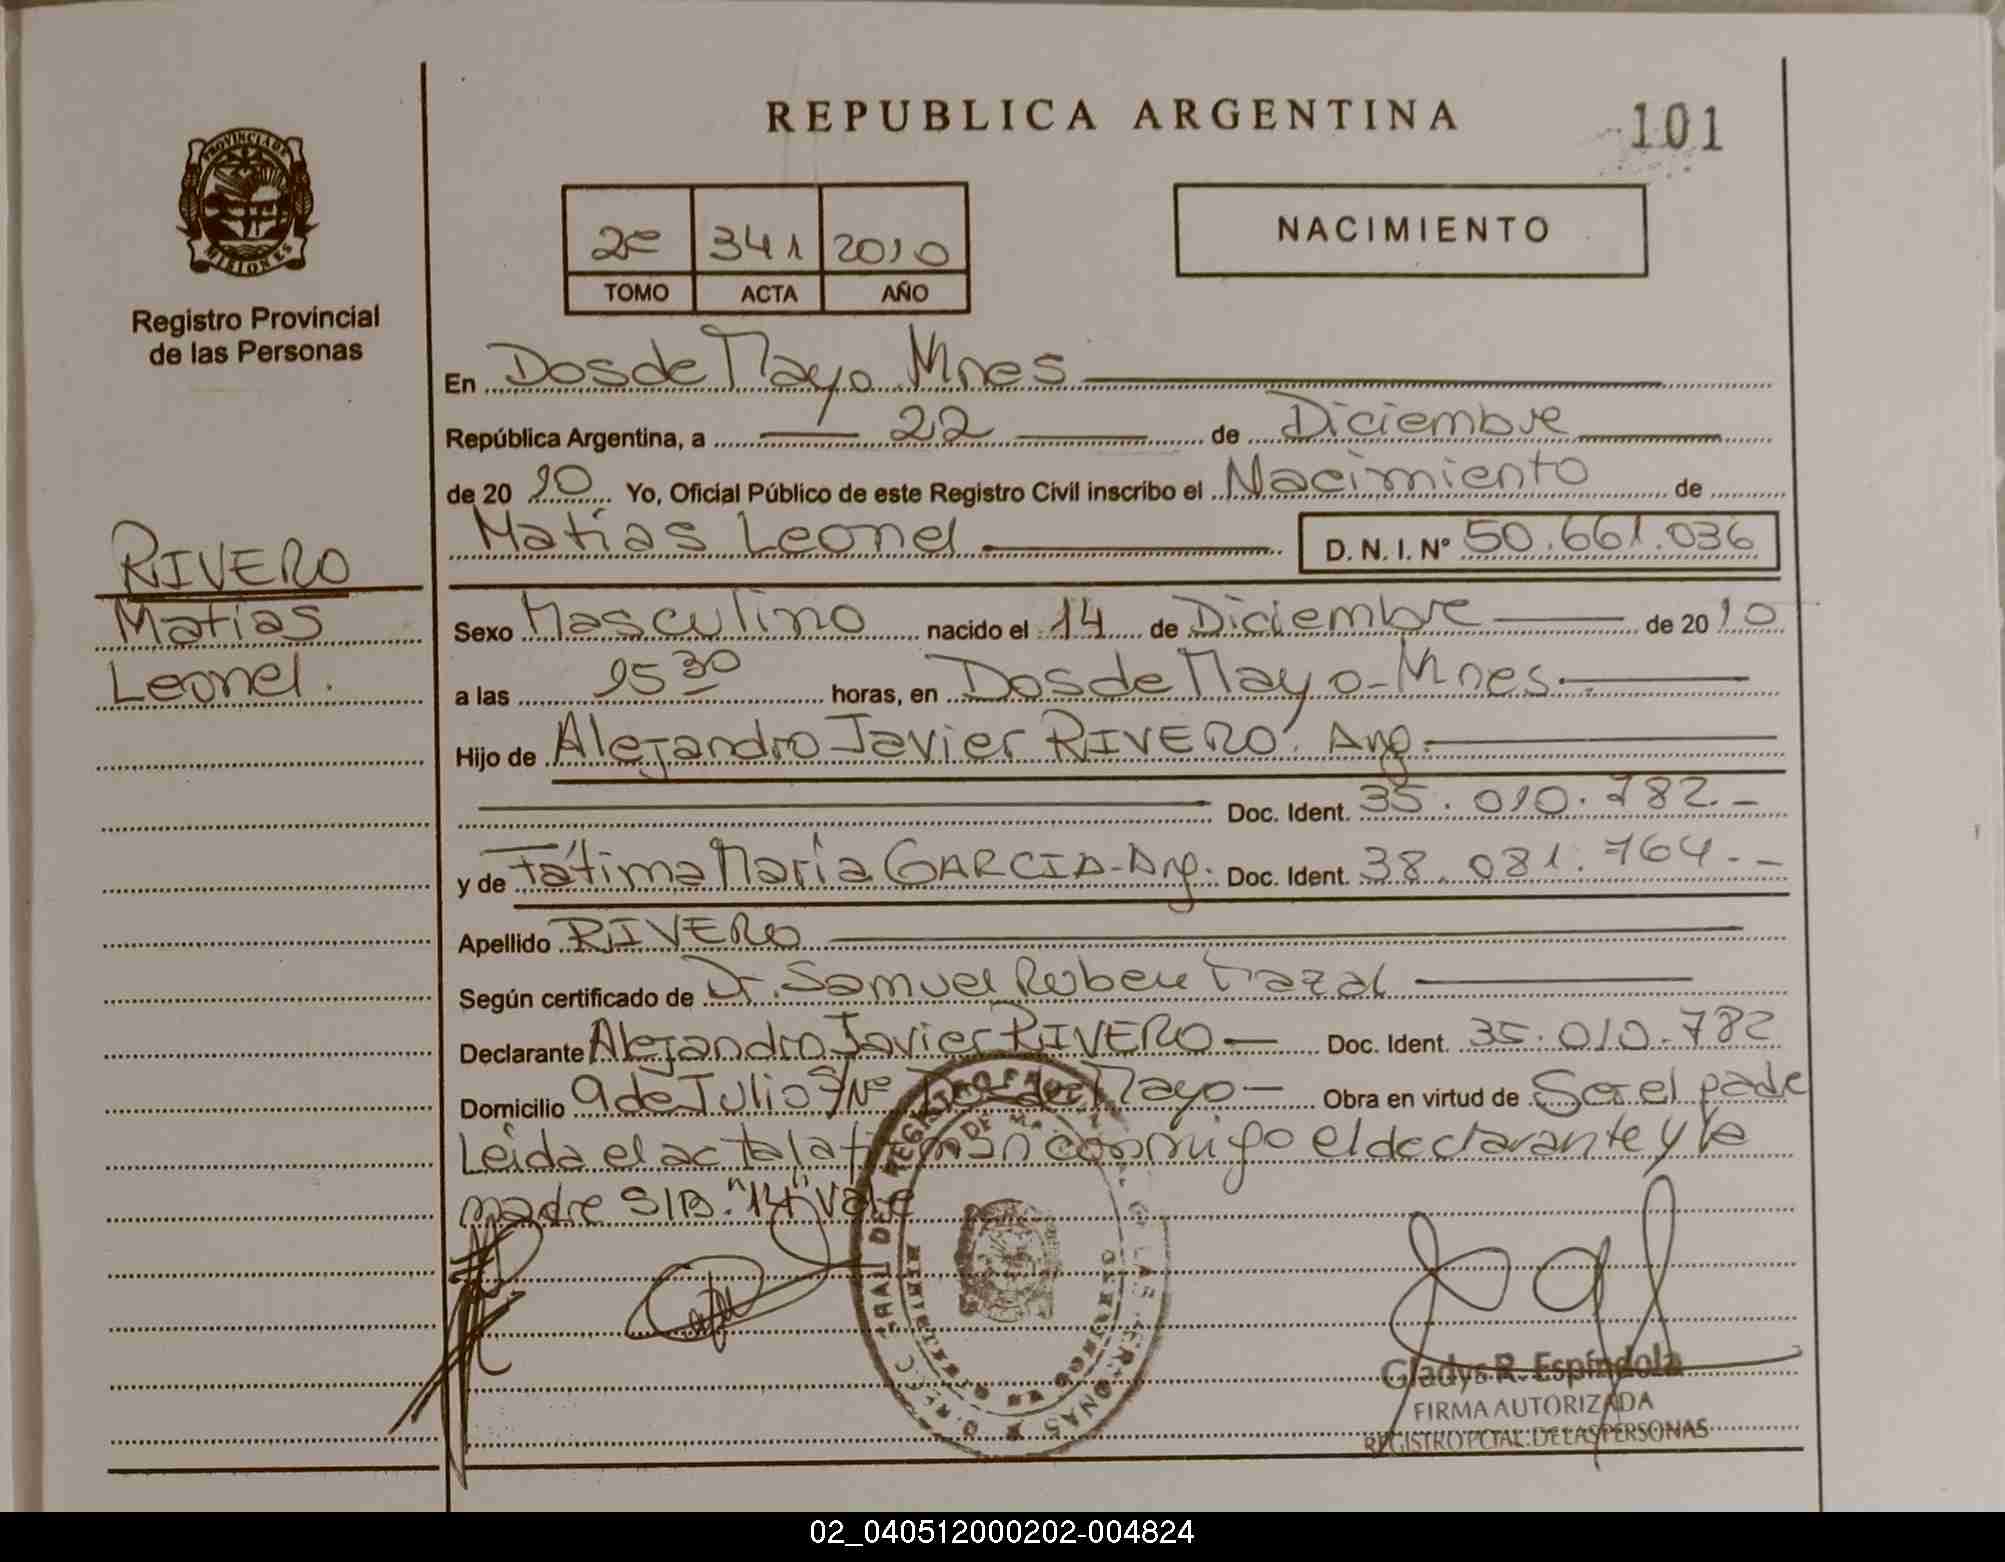 REPUBLICA ARGENTINA
101
PROVINCIA DE
MISIONES
Registro Provincial
de las Personas
2º 341 2010
TOMO ACTA AÑO
NACIMIENTO
En Dos de Mayo Mnes
República Argentina, a 22 de Diciembre
de 20 10 Yo, Oficial Público de este Registro Civil inscribo el Nacimiento de
Matías Leonel D. N. I. Nº 50.661.036
RIVERO
Matías
Leonel.
Sexo Masculino nacido el 14 de Diciembre de 20 10
a las 15 30 horas, en Dos de Mayo-Mnes.
Hijo de Alejandro Javier RIVERO. Arg.
Doc. Ident. 35.010.782.-
y de Fátima María GARCIA-Arg. Doc. Ident. 38.081.764.-
Apellido RIVERO
Según certificado de Dr. Samuel Ruben
Declarante Alejandro Javier RIVERO - Doc. Ident. 35.010.782
Domicilio 9 de Julio S/Nº Dos de Mayo - Obra en virtud de Ser el padre
Leida el acta la firman conmigo el declarante y la
madre S/B. "14" Vale
Gladys R. Espíndola
FIRMA AUTORIZADA
REGISTRO PCIAL. DE LAS PERSONAS
02_040512000202-004824